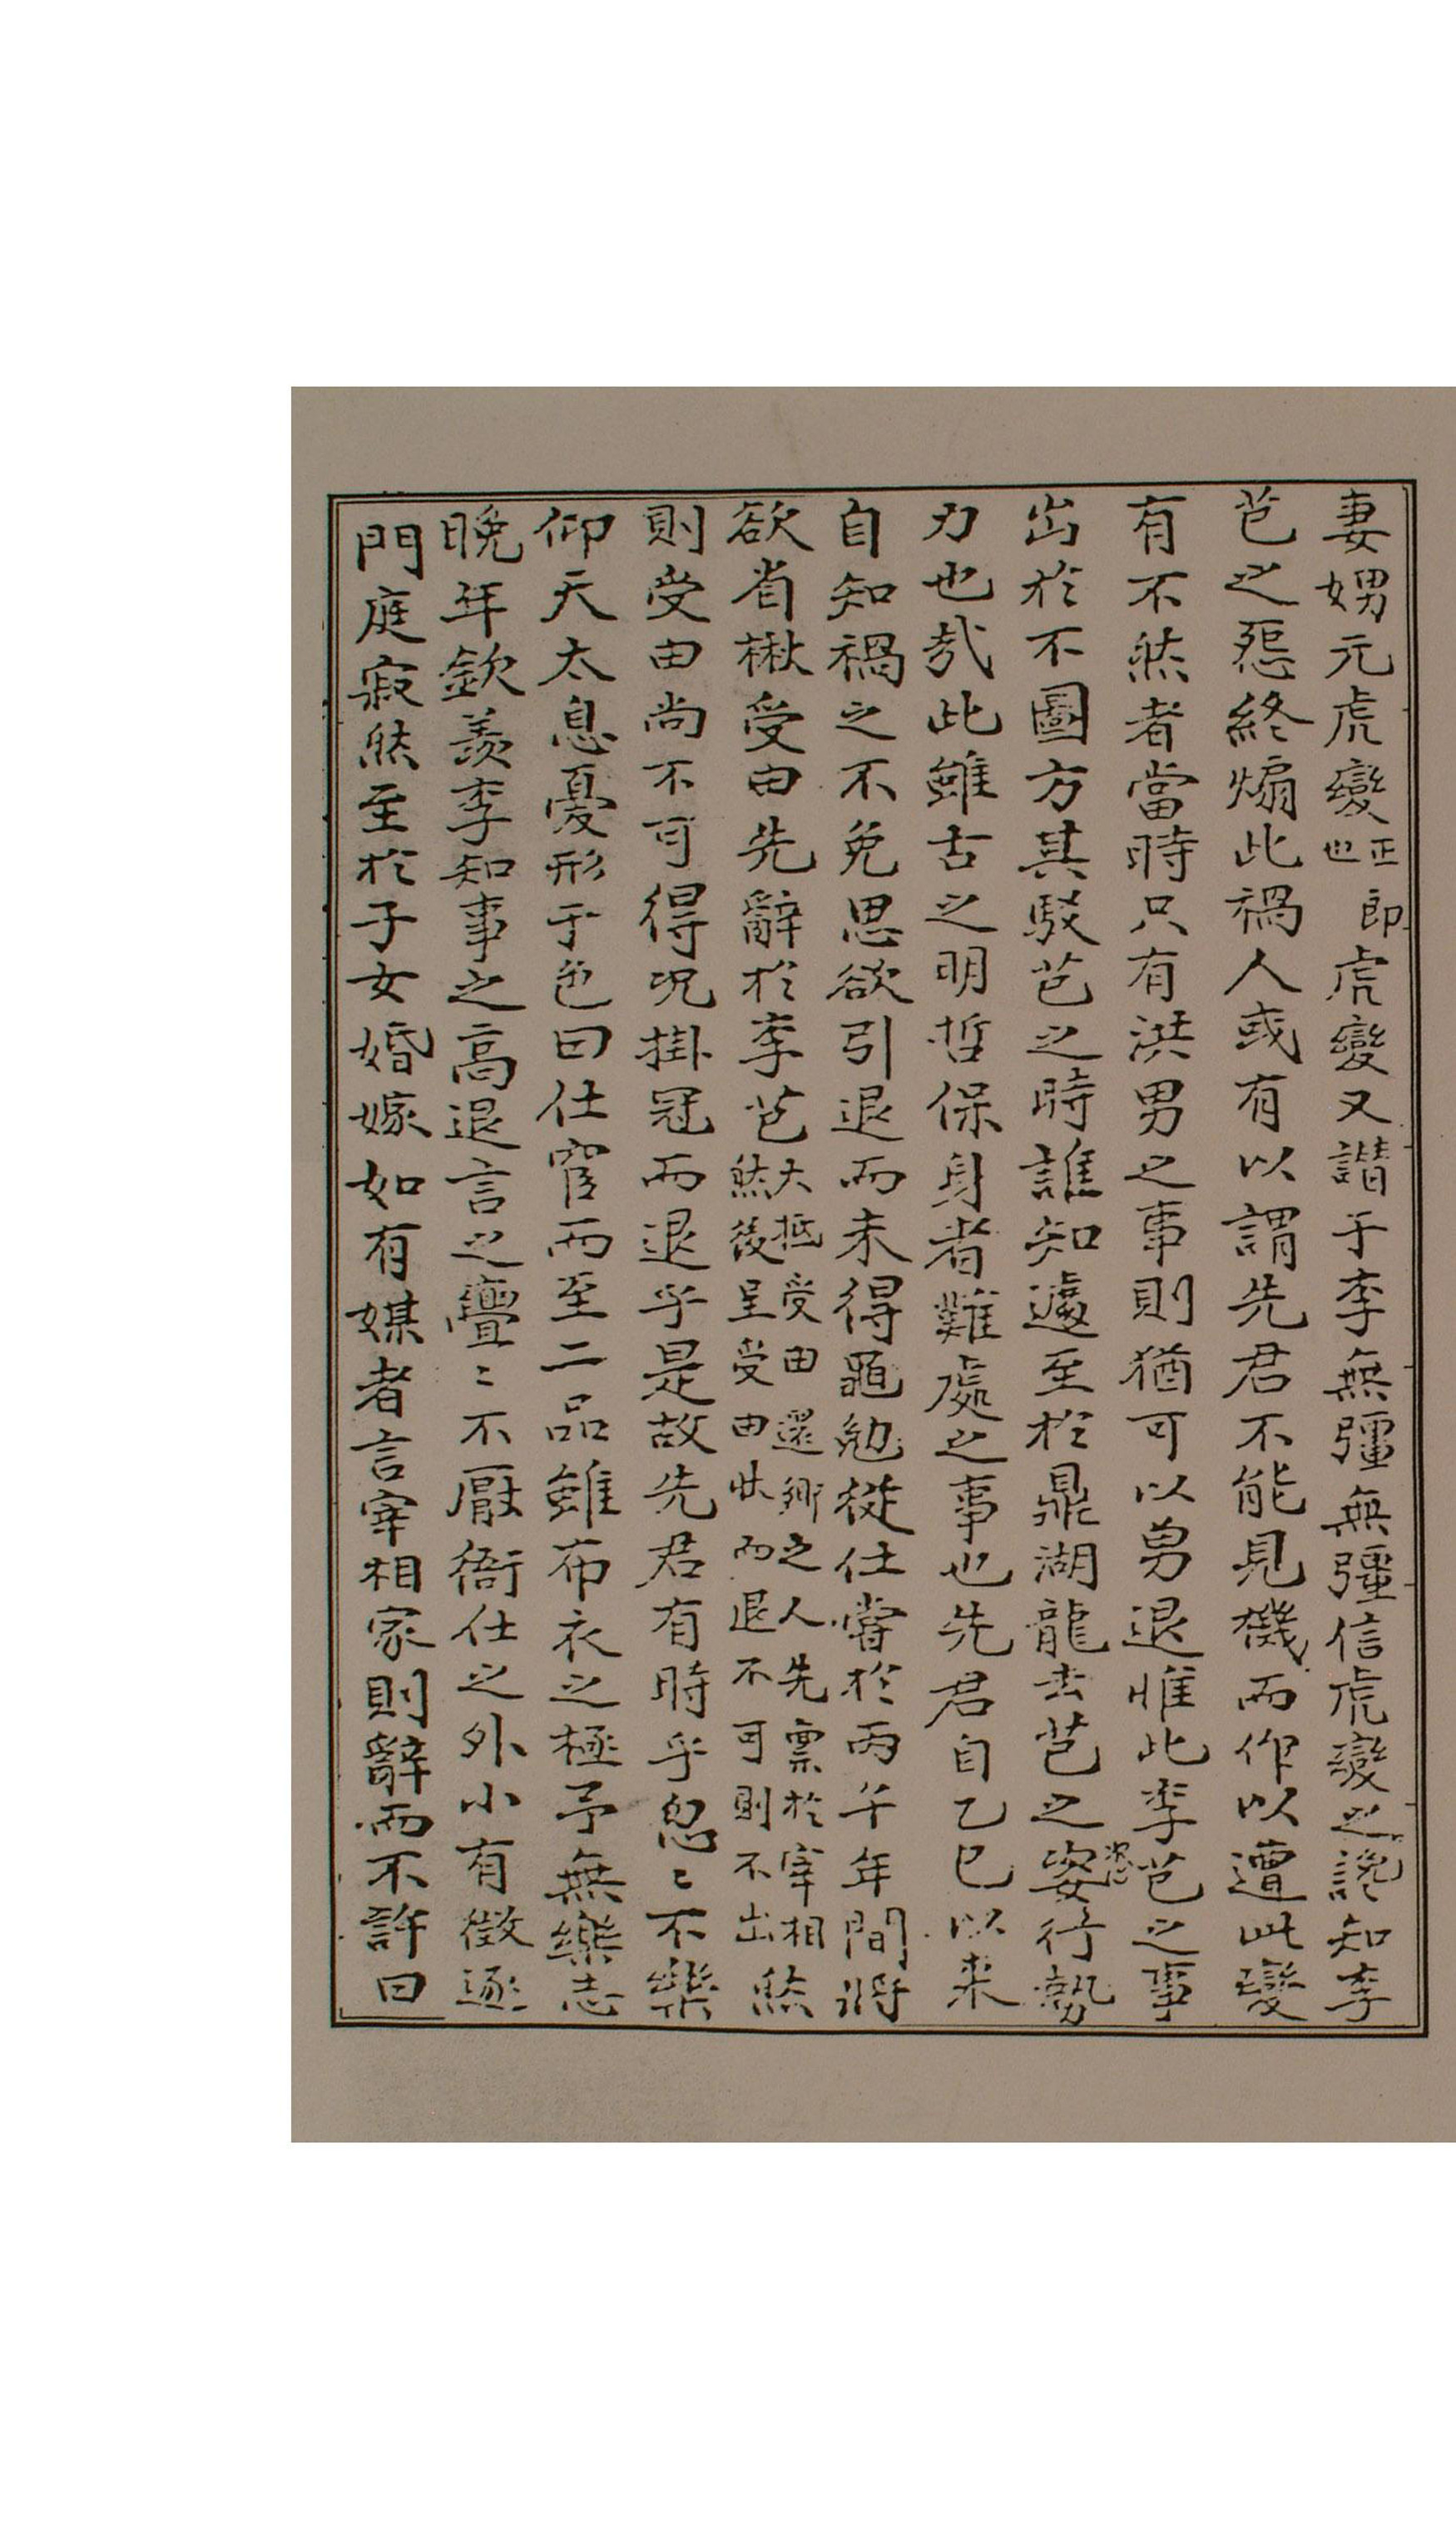 妻娚元虎變正也即虎變又譖于李無彊無彊信虎變之讒知李
芑之怨終煽此禍人或有以謂先君不能見機而作以遭此變
有不然者當時只有洪男之事則猶可以勇退惟此李芑之事
出於不圖方其駁芑之時誰知遽至於鼎湖龍去芑之姿恣行勢
力也哉此雖古之明哲保身者難處之事也先君自乙巳以来
自知禍之不免思欲引退而未得黽勉從仕嘗於丙午年間将
欲省楸受由先辭於李芑大抵受由還鄉之人先禀於宰相然後呈受由狀而退不可則不出然
則受由尚不可得况掛冠而退乎是故先君有時乎忽〻不樂
仰天太息憂形于色曰仕宦而至二品雖布衣之極予無樂志
晚年欽羡李知事之高退言之亹〻不厭衙仕之外小有徵逐
門庭寂然至於子女婚嫁如有媒者言宰相家則辭而不許曰